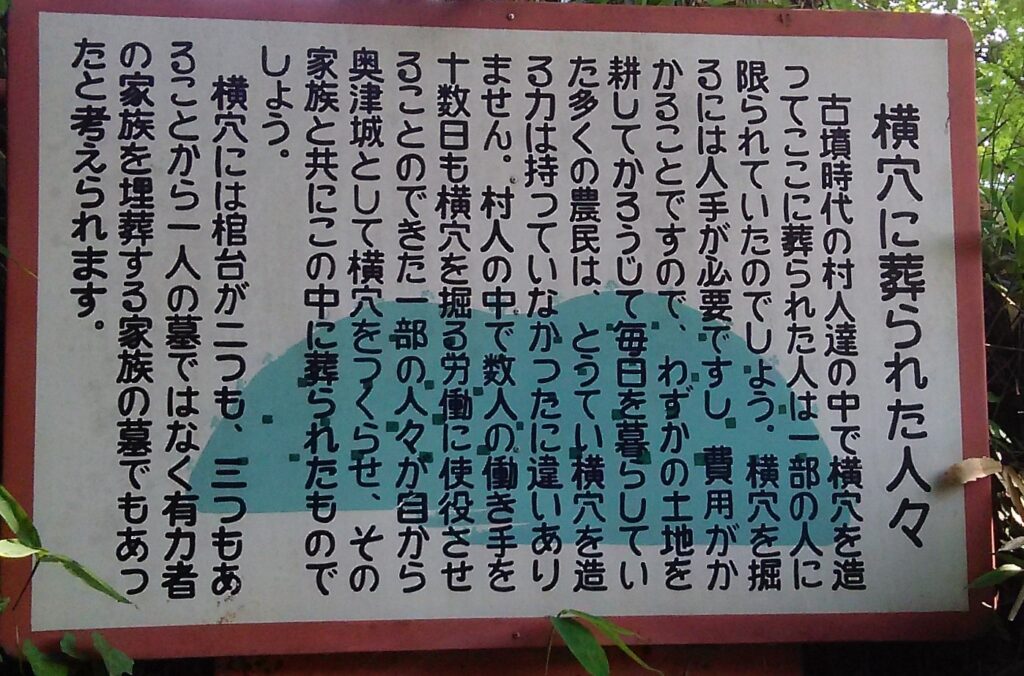 横穴に葬られた人々
古墳時代の村人達の中で横穴を造
ってここに葬られた人は一部の人に
限られていたのでしょう。横穴を掘
るには人手が必要ですし 費用がか
かることですので、わずかの土地を
耕してかろうじて毎日を暮らしてい
た多くの農民は、とうてい横穴を造
る力は持っていなかったに違いあり
ません。村人の中で数人の働き手を
十数日も横穴を掘る労働に使役させ
ることのできた一部の人々が自から
奥津城として横穴をつくらせ、その
家族と共にこの中に葬られたもので
しょう。
横穴には棺台が二つも、三つもあ
ることから一人の墓ではなく有力者
の家族を埋葬する家族の墓でもあっ
たと考えられます。